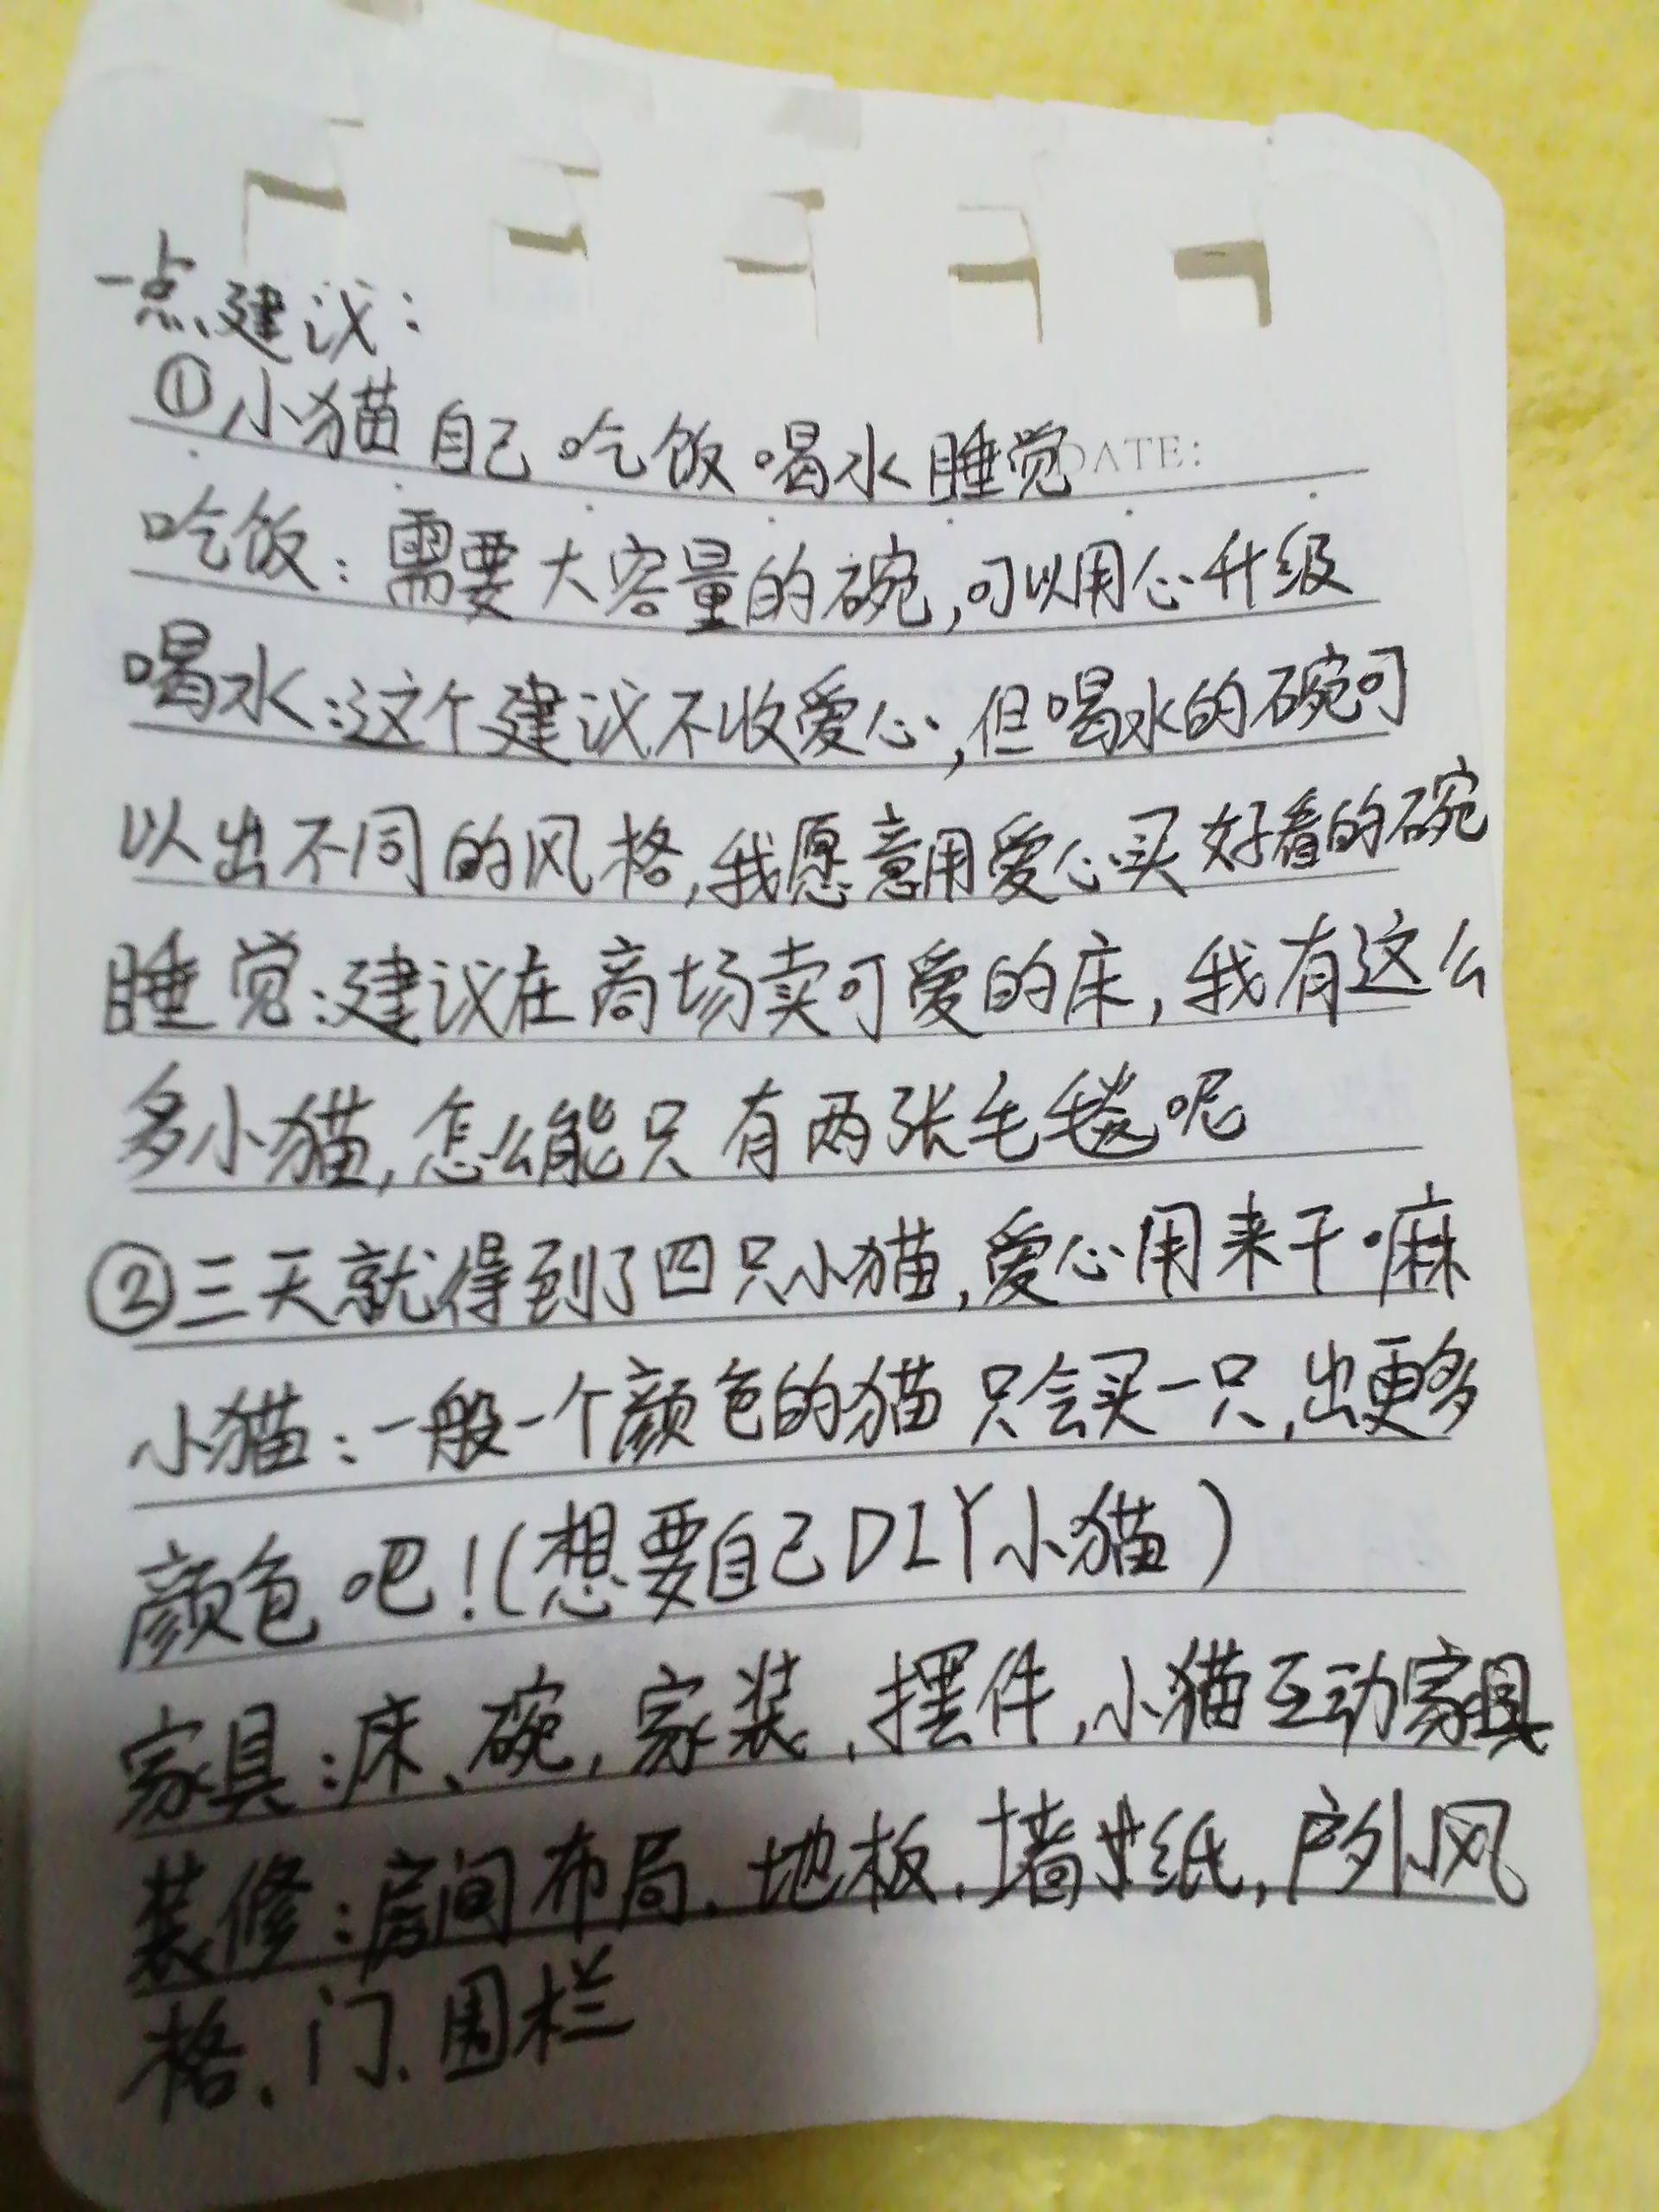 一点建议：
①小猫自己吃饭喝水睡觉
DATE:
吃饭：需要大容量的碗，可以用心升级
喝水：这个建议不收爱心，但喝水的碗可
以出不同的风格，我愿意用爱心买好看的碗
睡觉：建议在商场卖可爱的床，我有这么
多小猫，怎么能只有两张毛毯呢
②三天就得到了四只小猫，爱心用来干嘛
小猫：一般一个颜色的猫只会买一只，出更多
颜色吧！（想要自己DIY小猫）
家具：床、碗，家装、摆件，小猫互动家具
装修：房间布局、地板、墙纸，户外风
格、门、围栏